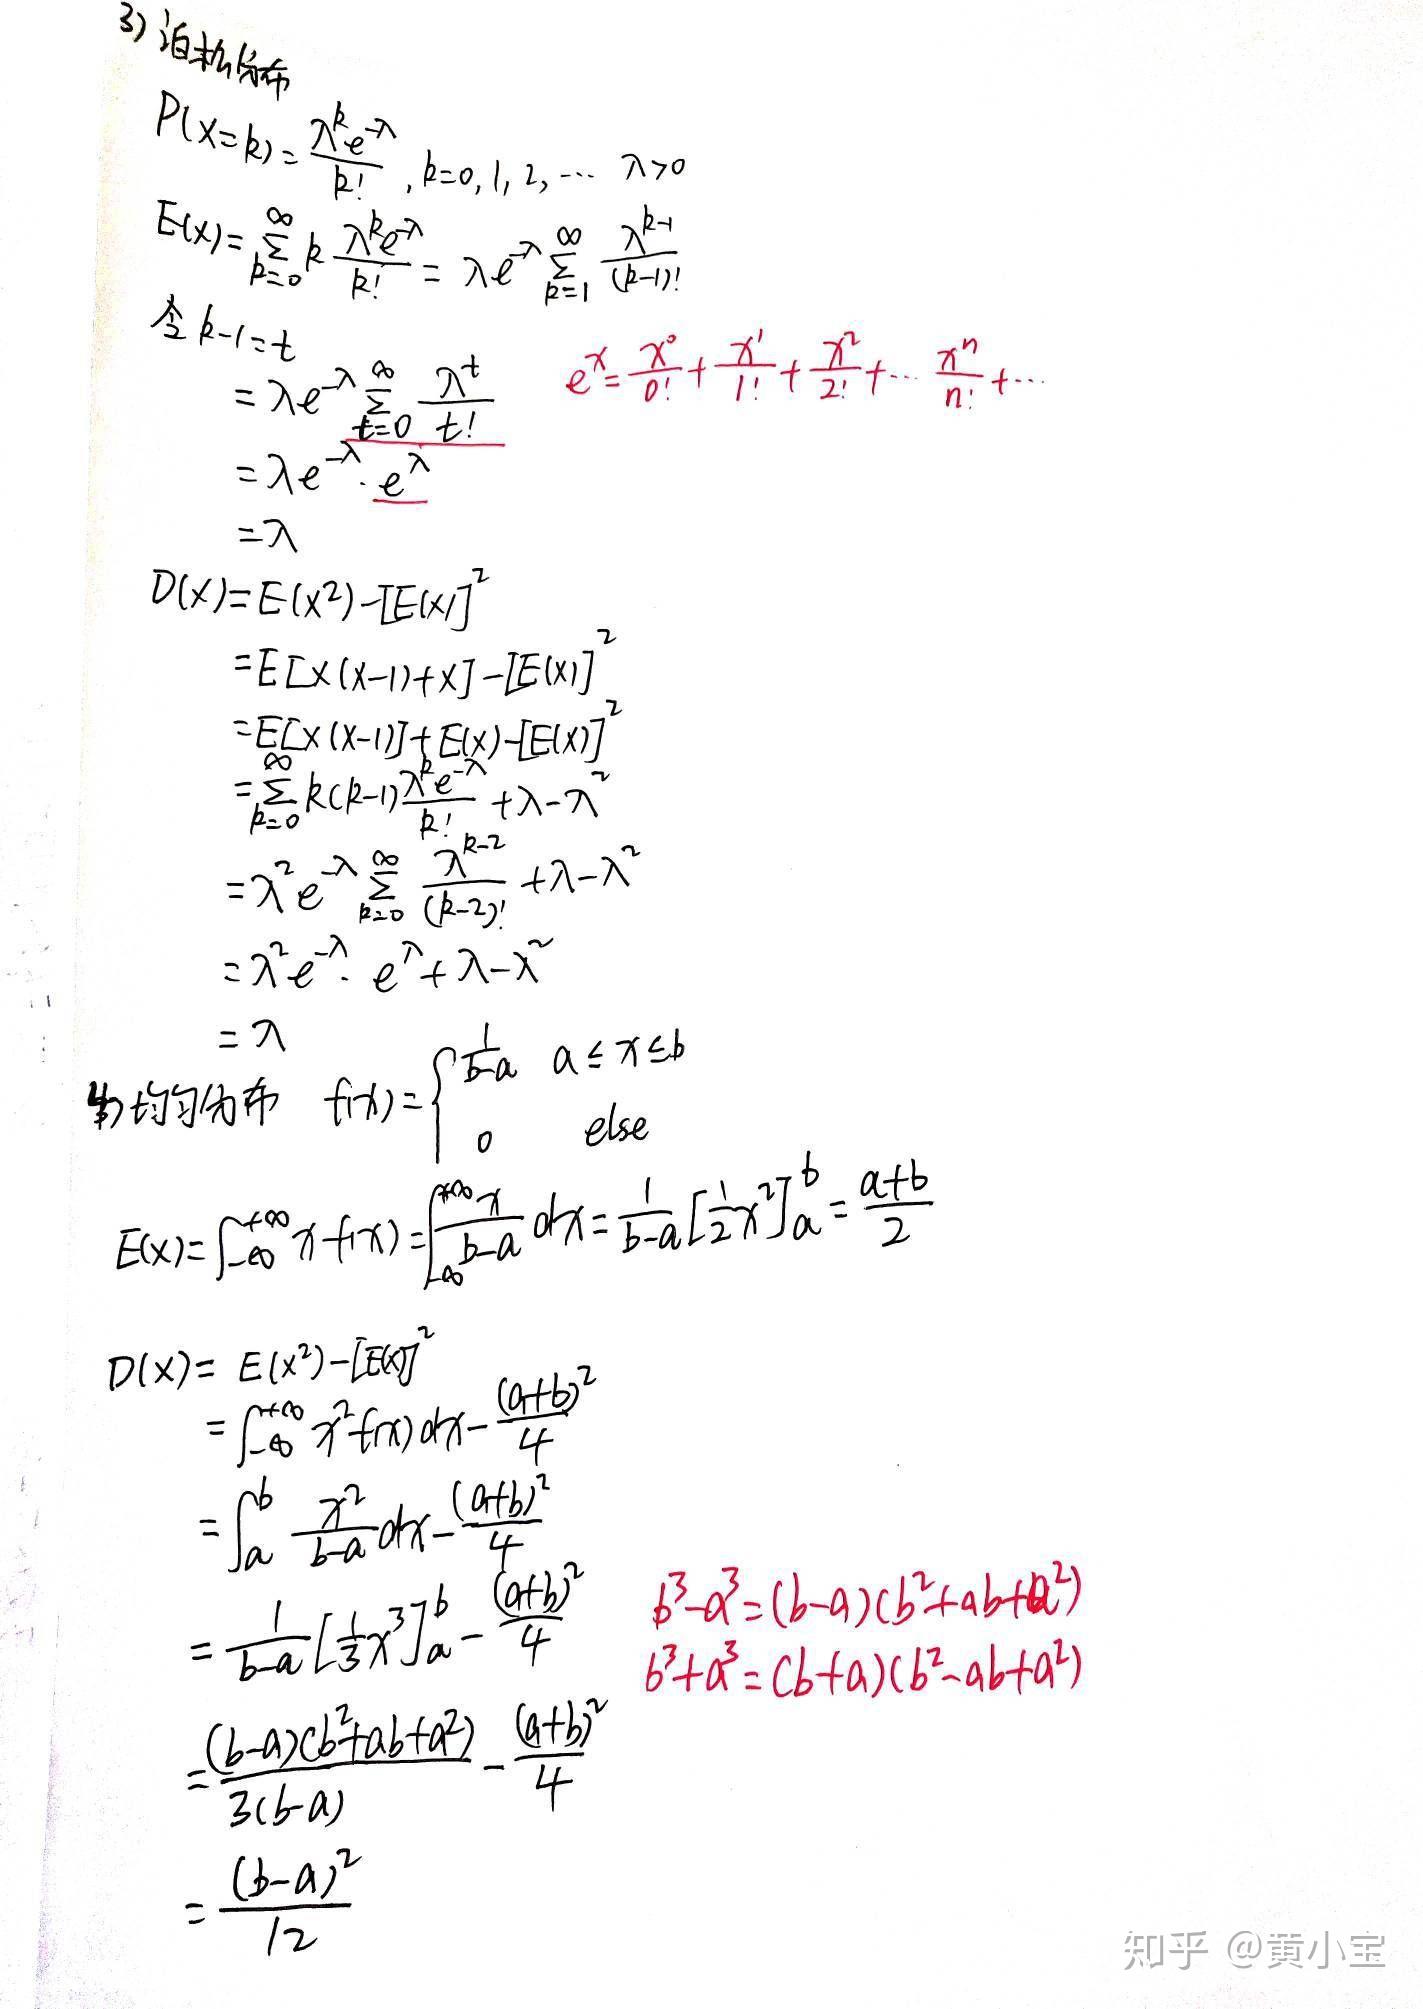 3) 泊松分布
P(X=k) = \frac{λ^k e^{-λ}}{k!}, k=0,1,2,… λ>0
E(X) = \sum_{k=0}^{∞} k \frac{λ^k e^{-λ}}{k!} = λe^{-λ} \sum_{k=1}^{∞} \frac{λ^{k-1}}{(k-1)!}
令 k-1=t
= λe^{-λ} \sum_{t=0}^{∞} \frac{λ^t}{t!}
e^x = \frac{x^0}{0!} + \frac{x^1}{1!} + \frac{x^2}{2!} + … \frac{x^n}{n!} + …
= λe^{-λ} · e^λ
= λ
D(X) = E(X^2) - [E(X)]^2
= E[X(X-1)+X] - [E(X)]^2
= E[X(X-1)] + E(X) - [E(X)]^2
= \sum_{k=0}^{∞} k(k-1) \frac{λ^k e^{-λ}}{k!} + λ - λ^2
= λ^2 e^{-λ} \sum_{k=0}^{∞} \frac{λ^{k-2}}{(k-2)!} + λ - λ^2
= λ^2 e^{-λ} · e^λ + λ - λ^2
= λ
4) 均匀分布 f(x) = { \frac{1}{b-a} a ≤ x ≤ b
0 else
E(X) = \int_{-∞}^{+∞} x f(x) = \int_{-∞}^{+∞} \frac{x}{b-a} dx = \frac{1}{b-a} [\frac{1}{2} x^2]_a^b = \frac{a+b}{2}
D(X) = E(X^2) - [E(X)]^2
= \int_{-∞}^{+∞} x^2 f(x) dx - \frac{(a+b)^2}{4}
= \int_a^b \frac{x^2}{b-a} dx - \frac{(a+b)^2}{4}
= \frac{1}{b-a} [\frac{1}{3} x^3]_a^b - \frac{(a+b)^2}{4}
b^3-a^3 = (b-a)(b^2+ab+a^2)
b^3+a^3 = (b+a)(b^2-ab+a^2)
= \frac{(b-a)(b^2+ab+a^2)}{3(b-a)} - \frac{(a+b)^2}{4}
= \frac{(b-a)^2}{12}
知乎 @黄小宝